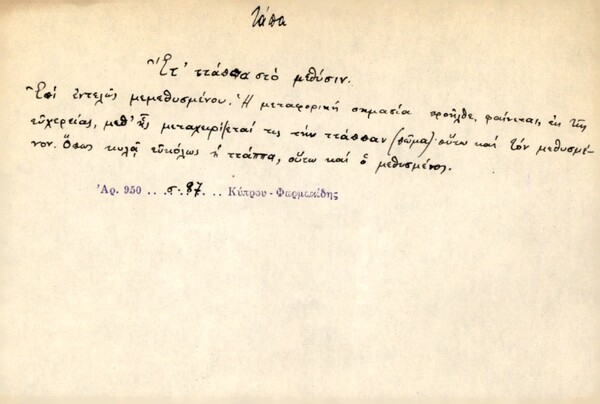 τάπα
Ἔτ' ττάππα στὸ μεθύσιν.
Ἐπὶ ἐντελῶς μεμεθυσμένου. Ἡ μεταφορικὴ σημασία προῆλθε, φαίνεται, ἐκ τῆς
εὐχερείας, μεθ' ἧς μεταχειρίζεταί τις τὴν ττάππαν (πῶμα)· οὕτω καὶ τὸν μεθυσμέ-
νον. Ὅπως κυλᾷ εὐκόλως ἡ ττάππα, οὕτω καὶ ὁ μεθυσμένος.
Ἀρ. 950 . . σ. 87. . . Κύπρου - Φαρμακίδης